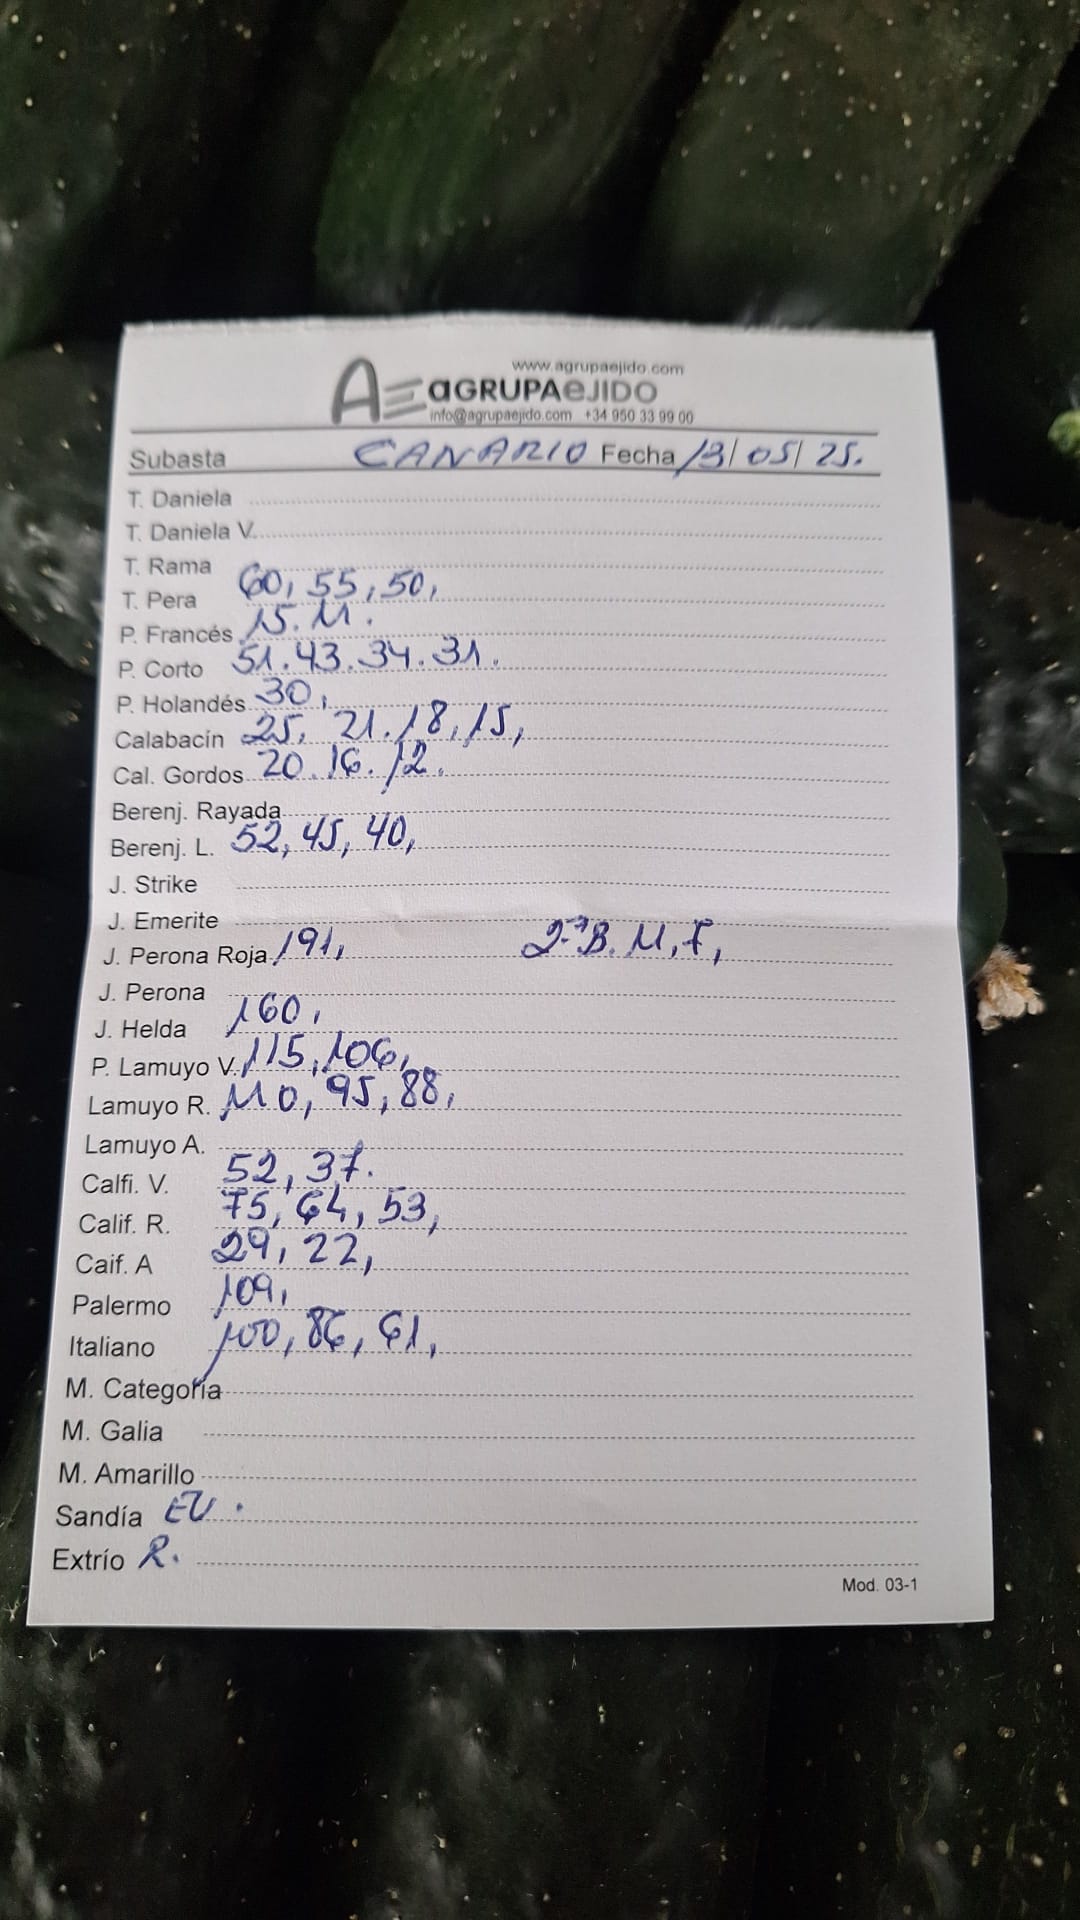 www.agrupaejido.com
AE aGRUPAeJIDO
info@agrupaejido.com +34 950 33 99 00
Subasta CANARIO Fecha 13/05/25.
T. Daniela
T. Daniela V.
T. Rama
T. Pera 60, 55, 50,
P. Francés 15. 11.
P. Corto 51. 43. 34. 31.
P. Holandés 30,
Calabacín 25, 21. 18, 15,
Cal. Gordos 20. 16. 12.
Berenj. Rayada
Berenj. L. 52, 45, 40,
J. Strike
J. Emerite
J. Perona Roja 191,
J. Perona
J. Helda 160,
P. Lamuyo V. 115, 106,
Lamuyo R. 110, 95, 88,
Lamuyo A.
Calfi. V. 52, 37.
Calif. R. 75, 64, 53,
Caif. A 29, 22,
Palermo 109,
Italiano 100, 86, 61,
M. Categoría
M. Galia
M. Amarillo
Sandía EU.
Extrío R.
Mod. 03-1